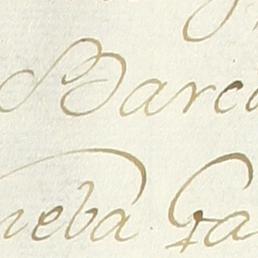 Barca
ueba Ga